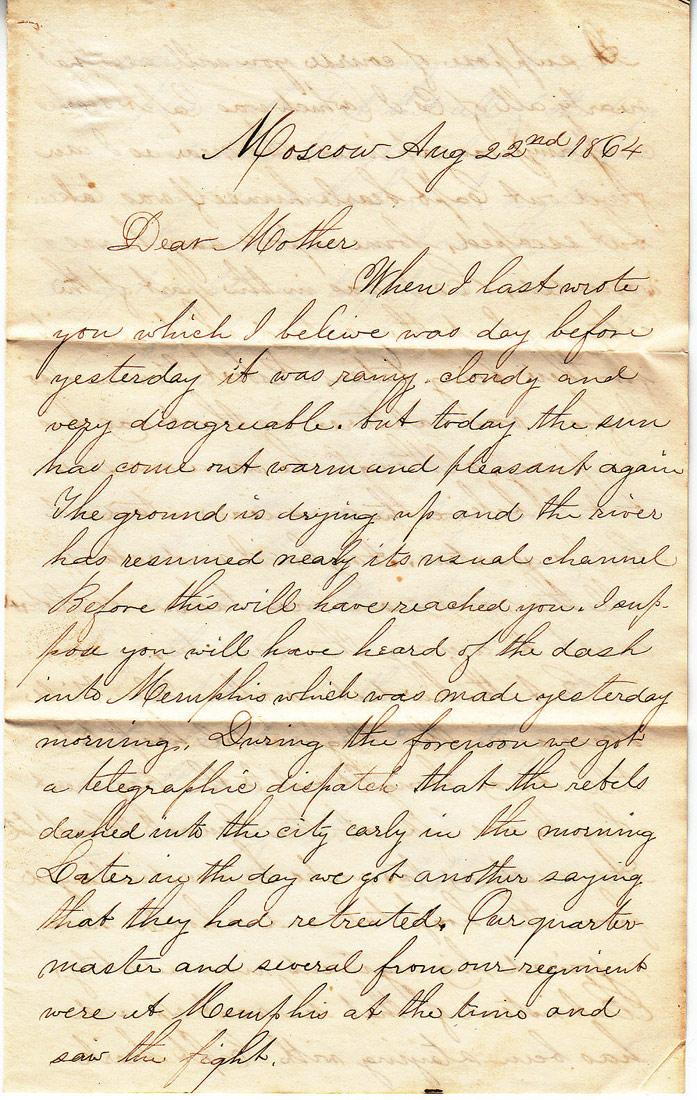 Moscow Aug 22nd 1864
Dear Mother
When I last wrote
you which I beleive was day before
yesterday it was rainy. cloudy and
very disagreeable. but today the sun
has come out warm and pleasant again
The ground is drying up and the river
has resumed nearly its usual channel
Before this will have reached you. I sup-
pose you will have heard of the dash
into Memphis which was made yesterday
morning. During the forenoon we got
a telegraphic dispatch that the rebels
dashed into the city early in the morning
Later in the day we got another saying
that they had retreated. Our quarter
master and several from our regiment
were at Memphis at the time and
saw the fight.